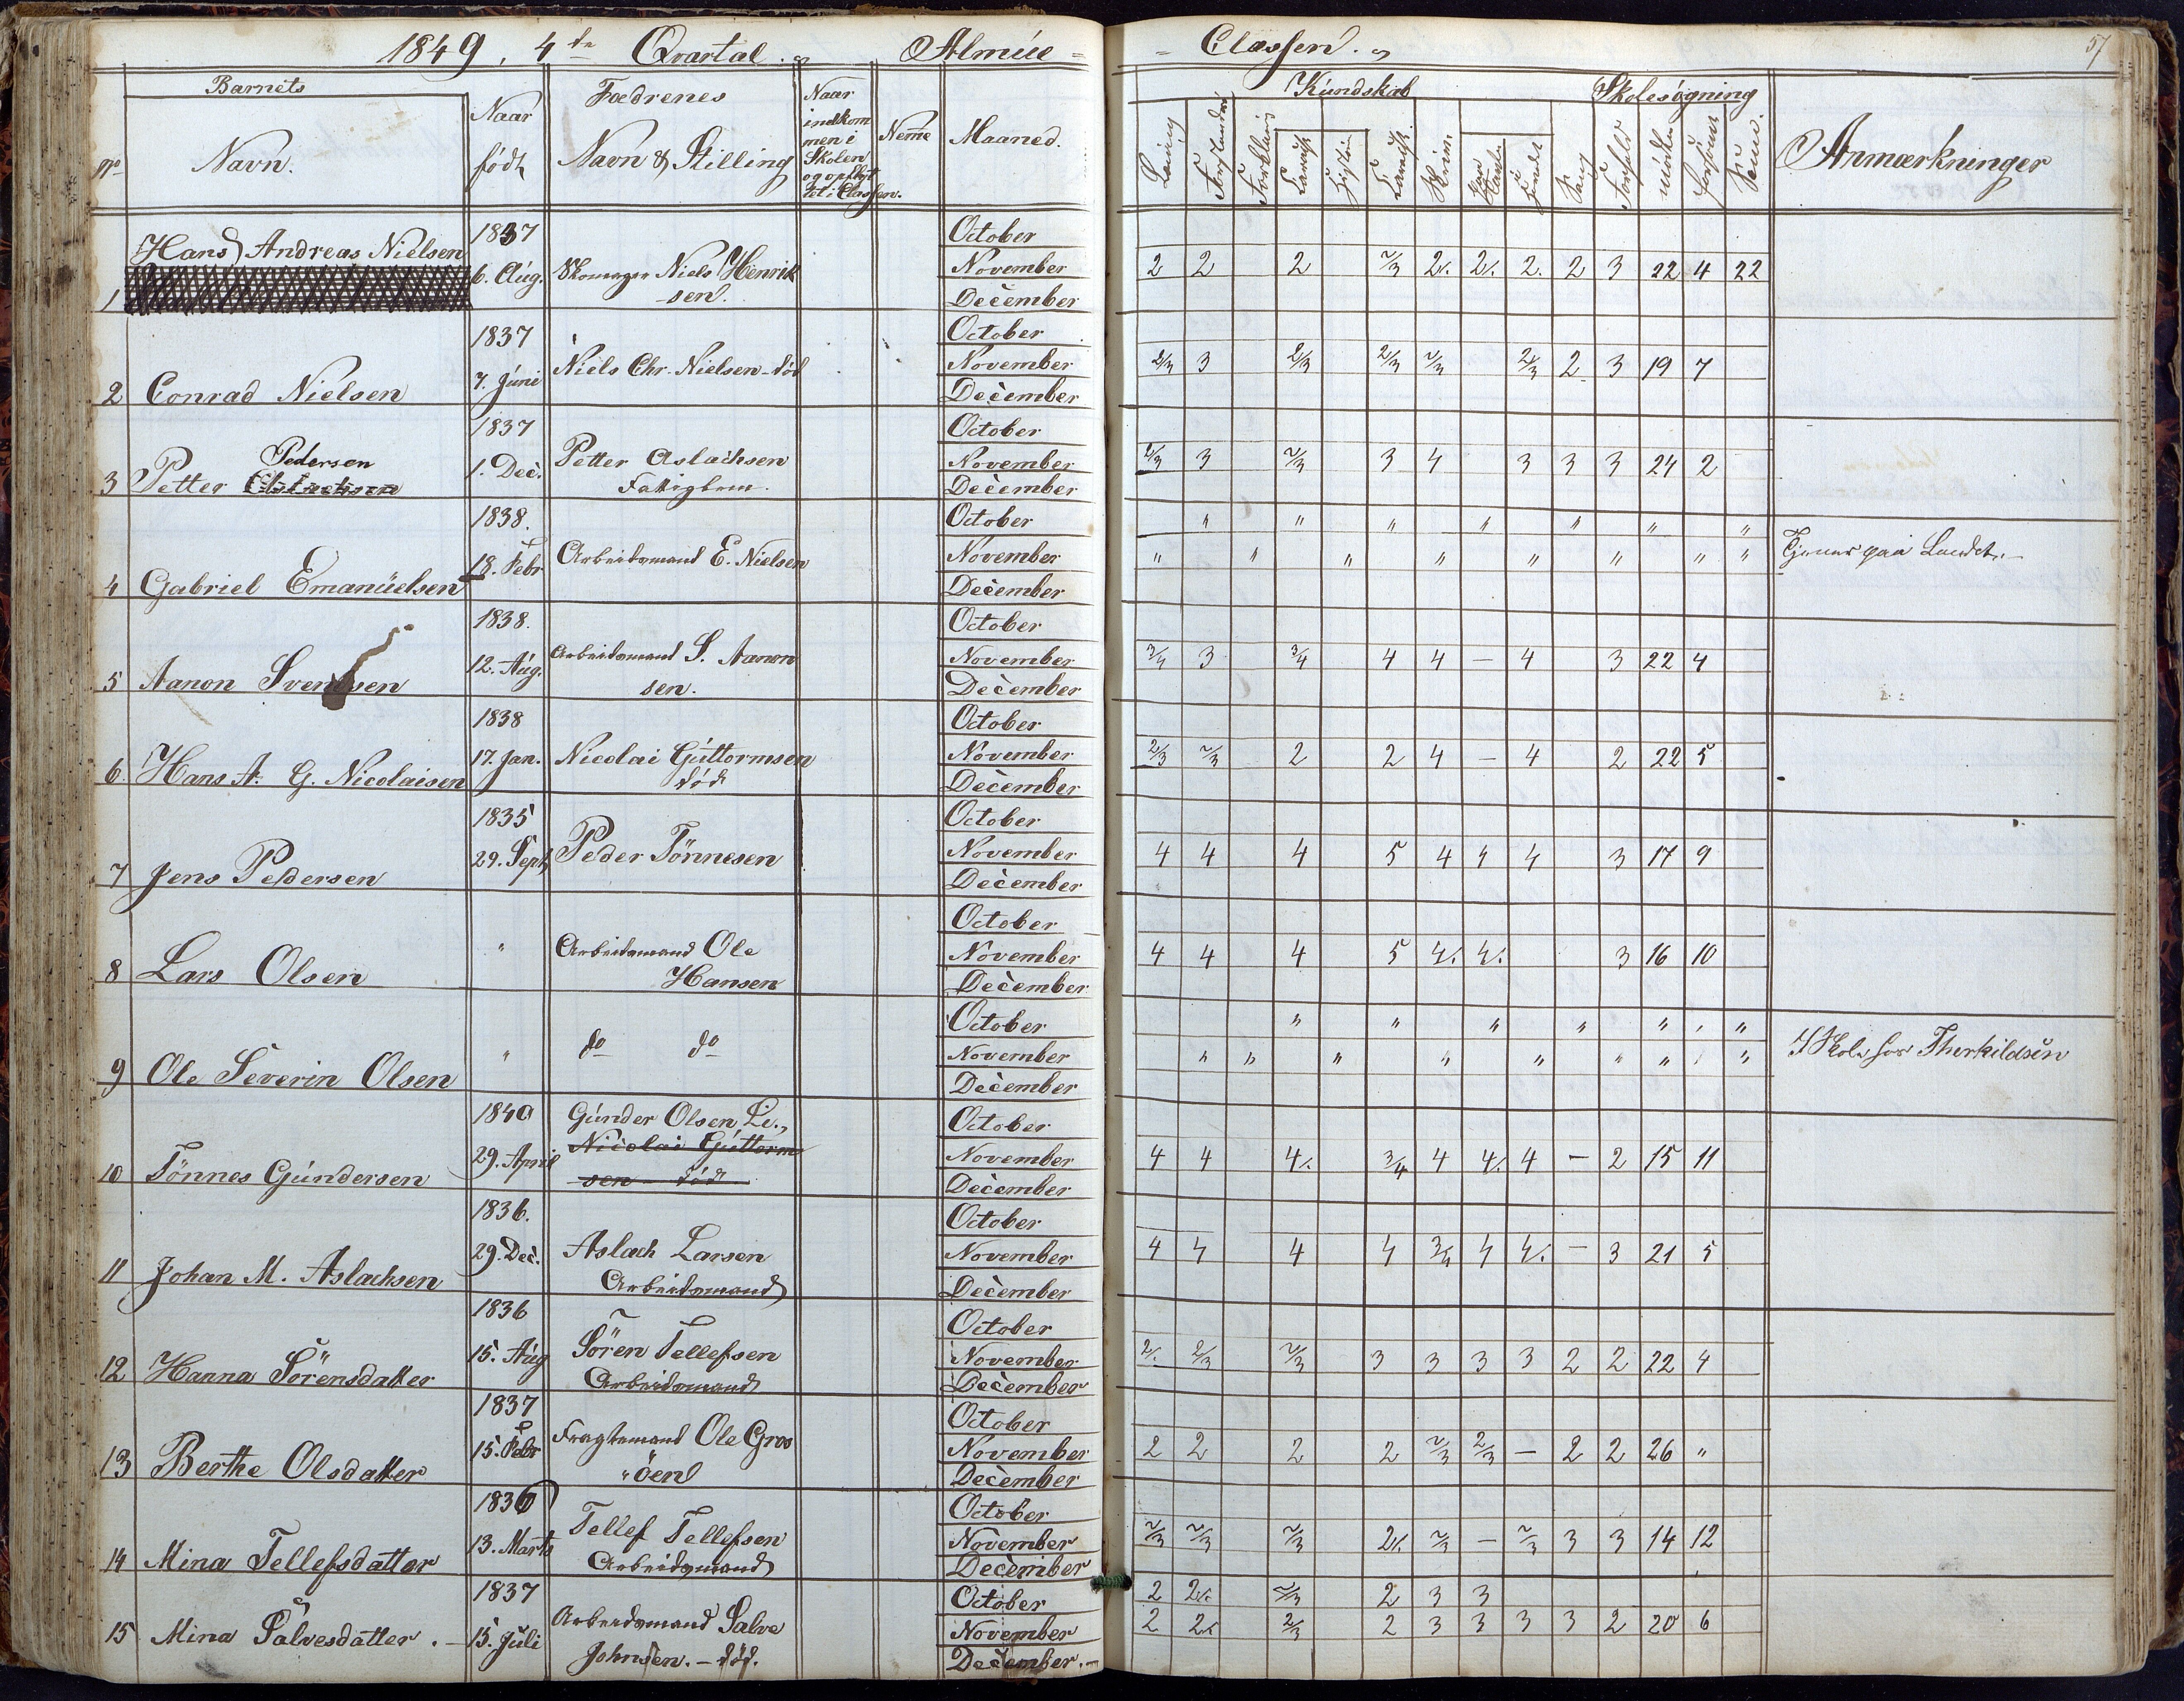 1849. 4de Qvartal. Almúe = = Classen.
57
Barnets
No
Navn.
Naar
født
Fædrenes
Navn & Stilling
Naar
indkom
men i
Skolen
og opflyt
tet i Classen.
Nemme
Maaned.
Kúndskab
Skolesøgning
Anmærkninger
1 Hans Andreas Nielsen 1837 6. Aúg. Skomager Niels Henrik
-sen.
October
November 2 2 2 2/3 2. 2. 2. 2 3 22 4 22
December
2 Conrad Nielsen 1837 7. Júni Niels Chr. Nielsen - død
October
November 2/3 3 2/3 2/3 2/3 2/3 2 3 19 7
December
3 Petter Pedersen 1837 1. Dec. Petter Aslachsen
Fattiglem.
October
November 2/3 3 2/3 3 4 3 3 3 24 2
December
4 Gabriel Emanúelsen 1838. 18. Febr Arbeidsmand E. Nielsen
October " " " " " " "
November " " " " " " " " Tjener paa Landet.
December
5 Aanon Svendsen 1838. 12. Aúg. Arbeidsmand S. Aanon
sen.
October
November 3/4 3 3/4 4 4 - 4 3 22 4
December
6. Hans A. G. Nicolaisen 1838 17. Jan. Nicolai Gúttormsen
død
October
November 2/3 2/3 2 2 4 - 4 2 22 5
December
7 Jens Pedersen 1835 29. Sept. Peder Tönnesen
October
November 4 4 4 5 4 4 4 3 17 9
December
8 Lars Olsen " Arbeidsmand Ole
Hansen
October
November 4 4 4 5 4. 4. 3 16 10
December
9 Ole Severin Olsen " do do
October " " " " " "
November " " " " " " " " I Skole hos Therkildsen
December
10 Tönnes Gúndersen 1840 29. April Gúnder Olsen Li.,
Nicolai Gúttorm
sen - død
October
November 4 4 4. 3/4 4 4. 4 - 2 15 11
December
11 Johan M. Aslachsen 1836. 29. Dec. Aslach Larsen
Arbeidsmand
October
November 4 4 4 4 3/4 4 4. - 3 21 5
December
12 Hanna Sörensdatter 1836 15. Aúg Sören Tellefsen
Arbeidsmand
October
November 2. 2/3 2/3 3 3 3 3 2 2 22 4
December
13 Berthe Olsdatter 1837 15. Febr Fragtemand Ole Groo
"öen
October
November 2 2 2 2 2/3 2/3 - 2 2 26 "
December
14 Mina Tellefsdatter 1836 13. Marts Tellef Tellefsen
Arbeidsmand
October
November 2/3 2/3 2/3 2. 2/3 - 2/3 3 3 14 12
December
15 Mina Salvesdatter. - 1837 15. Júli Arbeidsmand Salve
Johnsen. - död.
October 2 2. 2/3 2 3 3
November 2 2. 2/3 2 3 3 3 3 2 20 6
December. -